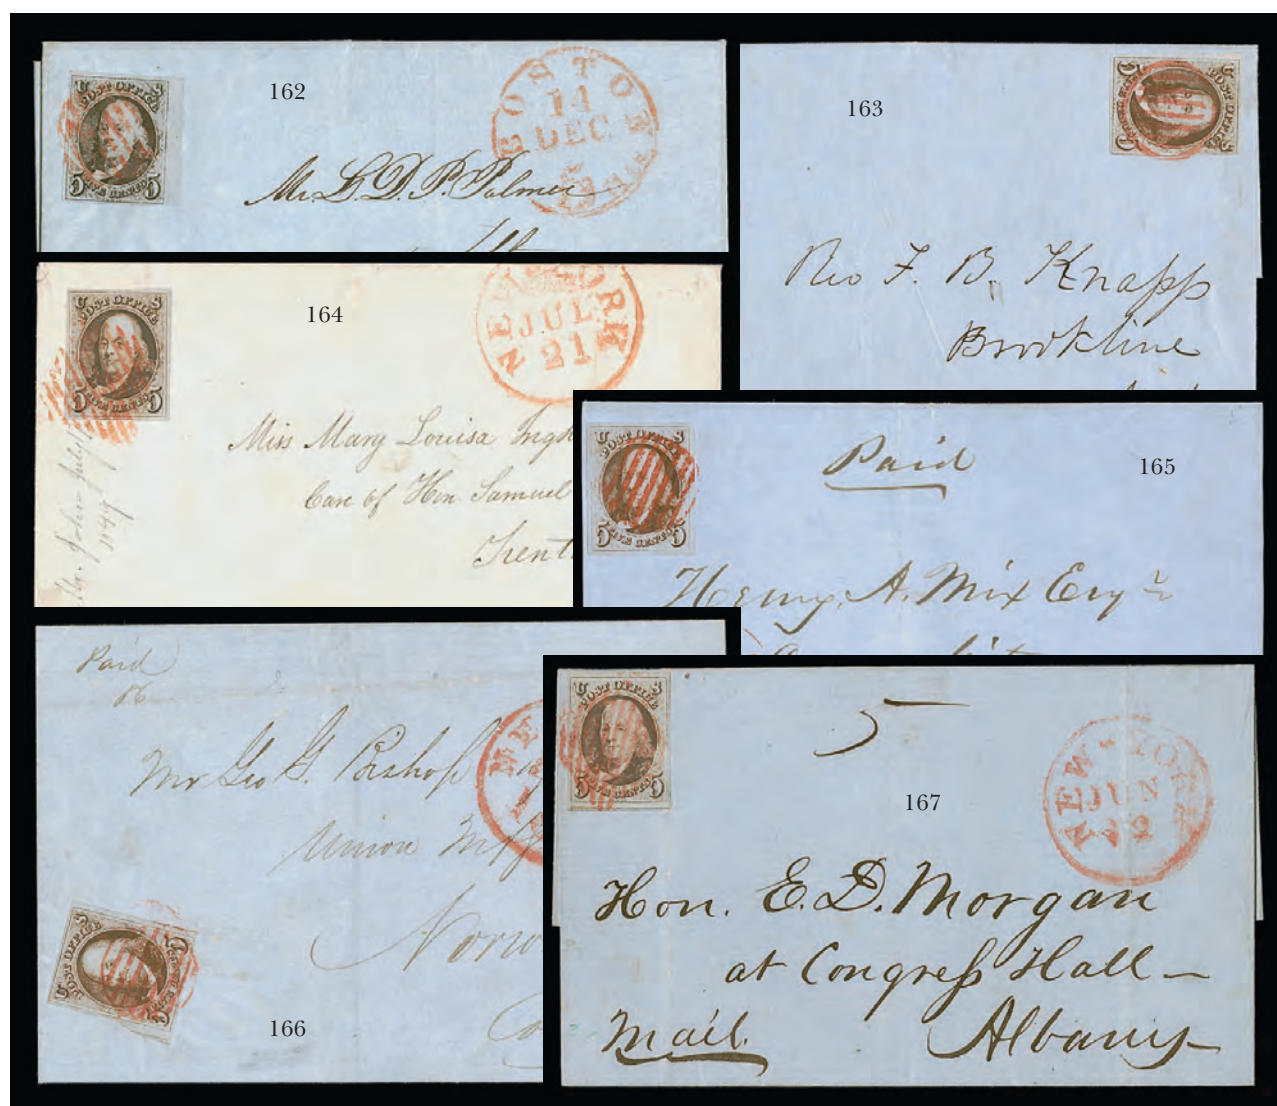 162
U S
POST OFFICE
5 FIVE CENTS 5
BOSTON
14
DEC
Mr. L. D. P. Palmer
163
U S
POST OFFICE
Rev F. B. Knapp
Brookline
164
U S
POST OFFICE
5 FIVE CENTS 5
NEW YORK
JUL
21
Miss Mary Louisa
Care of Hon. Samuel
Trent
July
1849
165
U S
POST OFFICE
5 FIVE CENTS 5
Paid
Henry. A. Mix Esqr
166
Paid
Mr Geo G. Bishop
Union Mfg
Norw
U S
POST OFFICE
167
U S
POST OFFICE
5 FIVE CENTS 5
5
NEW-YORK
JUN
2
Hon. E. D. Morgan
at Congress Hall
Mail. Albany